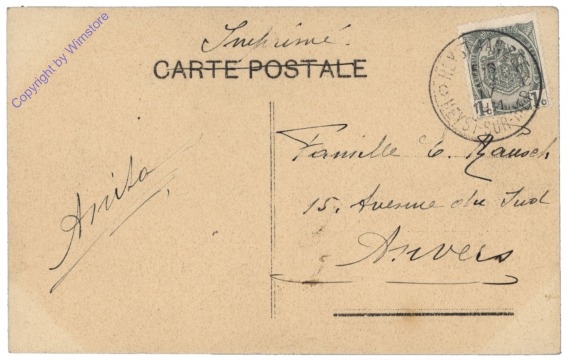 Copyright by Wimstore
Imprimé.
CARTE POSTALE
HEYST-SUR-MER
Famille E. Rausch
15, Avenue du Sud
Anvers
Anita